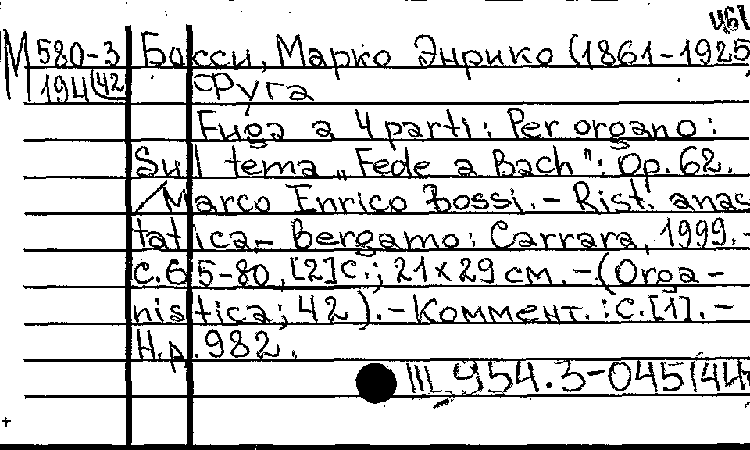 461
М 580-3 Босси, Марко Энрико (1861-1925
194(42 Фуга
Fuga a 4 parti : Per organo :
Sul tema „Fede a Bach": Op. 62.
/Marco Enrico Bossi. - Rist. anas
tatica - Bergamo : Carrara, 1999. -
с. 65-80, [2] с.; 21 x 29 см. - (Orga-
nistica; 42). - Коммент. : с. [1]. -
Н.р. 982.
III 954.3-045(44